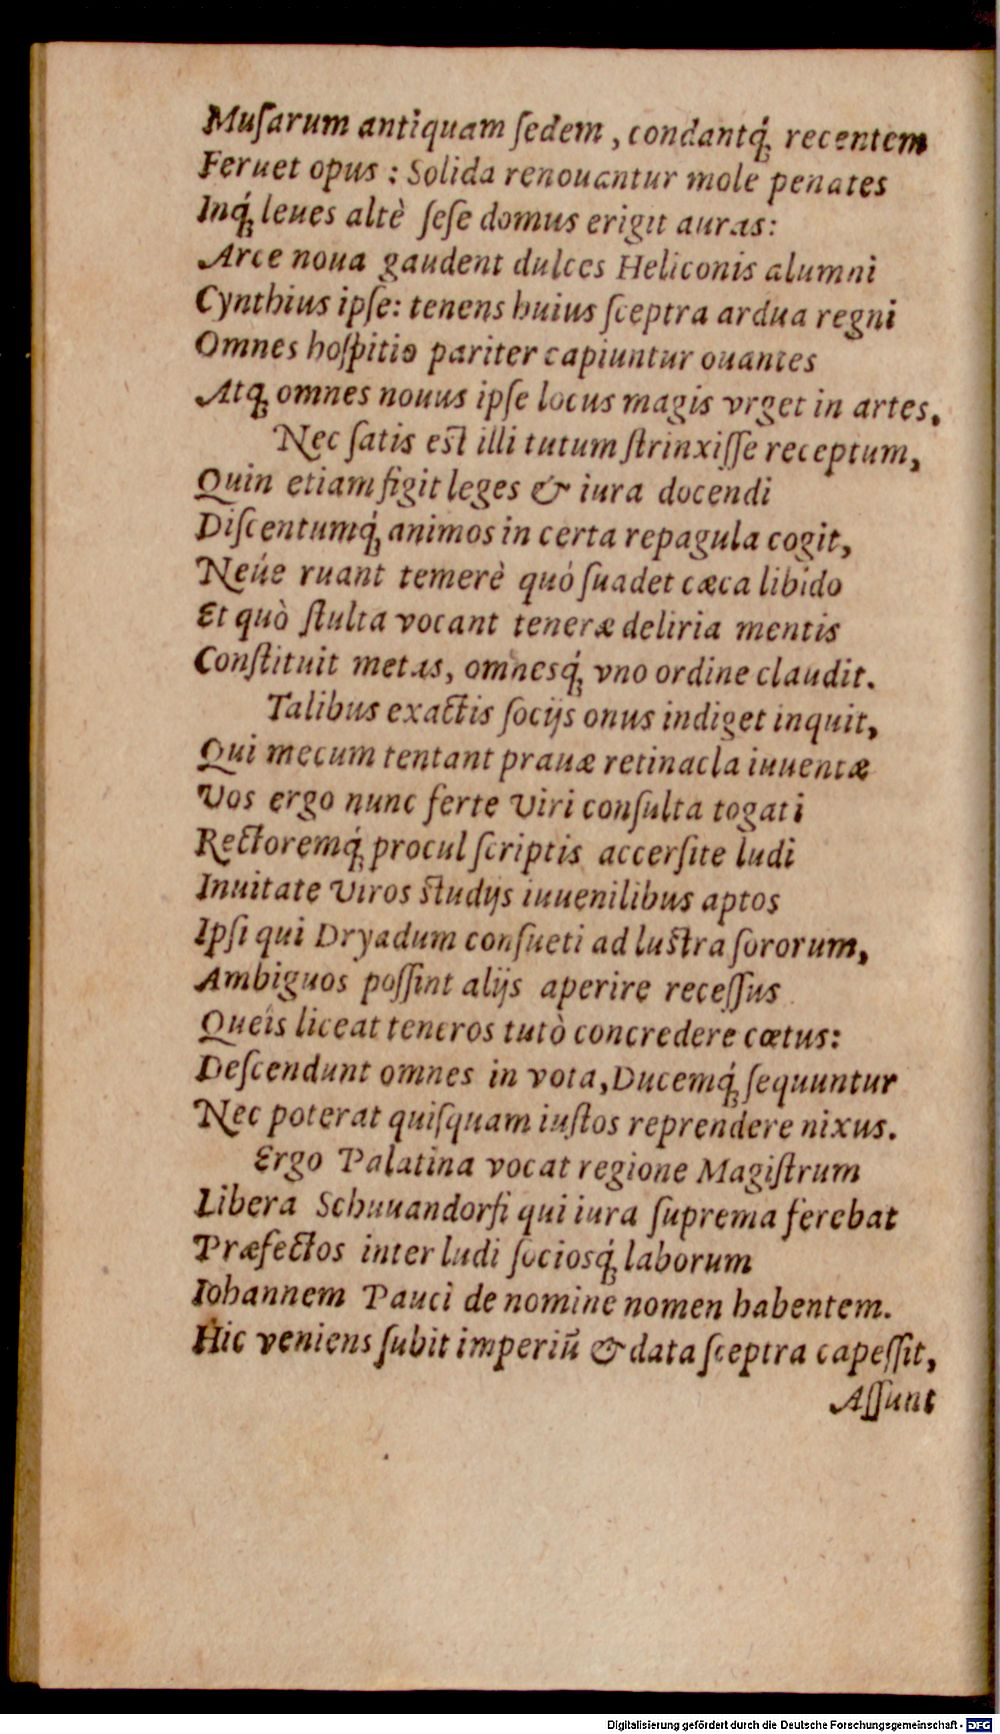 Muſarum antiquam ſedem, condantq́; recentem
Feruet opus: Solida renouantur mole penates
Inq́; leues altè ſeſe domus erigit auras:
Arce noua gaudent dulces Heliconis alumni
Cynthius ipſe: tenens huius ſceptra ardua regni
Omnes hoſpitio pariter capiuntur ouantes
Atq; omnes nouus ipſe locus magis vrget in artes.
Nec ſatis eſt illi tutum ſtrinxiſſe receptum,
Quin etiam figit leges & iura docendi
Diſcentumq́; animos in certa repagula cogit,
Neúe ruant temerè quó ſuadet cæca libido
Et quò ſtulta vocant teneræ deliria mentis
Conſtituit metas, omnesq́; vno ordine claudit.
Talibus exactis ſocijs onus indiget inquit,
Qui mecum tentant prauæ retinacla iuuentæ
Vos ergo nunc ferte Viri conſulta togati
Rectoremq́; procul ſcriptis accerſite ludi
Inuitate Viros ſtudijs iuuenilibus aptos
Ipſi qui Dryadum conſueti ad luſtra ſororum,
Ambiguos poſſint alijs aperire receſſus
Queîs liceat teneros tutò concredere cœtus:
Deſcendunt omnes in vota, Ducemq́; ſequuntur
Nec poterat quiſquam iuſtos reprendere nixus.
Ergo Palatina vocat regione Magiſtrum
Libera Schuuandorfi qui iura ſuprema ferebat
Præfectos inter ludi ſociosq́; laborum
Iohannem Pauci de nomine nomen habentem.
Hic veniens ſubit imperiū & data ſceptra capeſſit,
Aſſunt
Digitalisierung gefördert durch die Deutsche Forschungsgemeinschaft - DFG